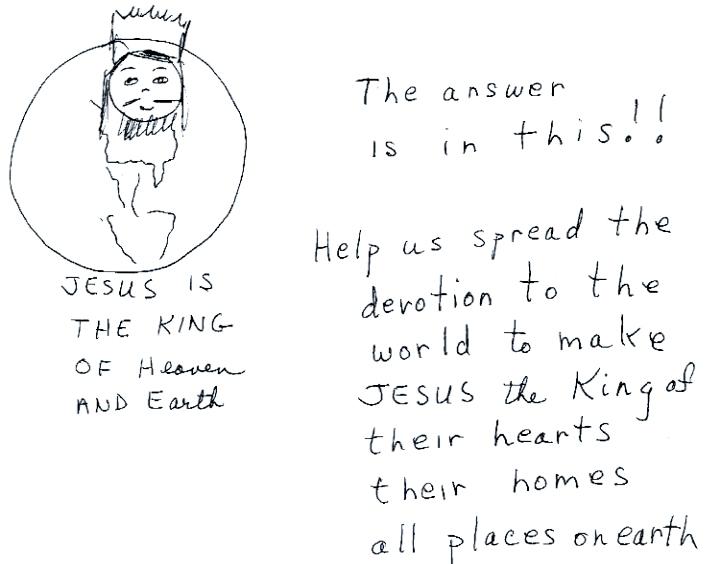 JESUS IS
THE KING
OF Heaven
AND Earth
The answer
is in this!!
Help us spread the
devotion to the
world to make
JESUS the King of
their hearts
their homes
all places on earth